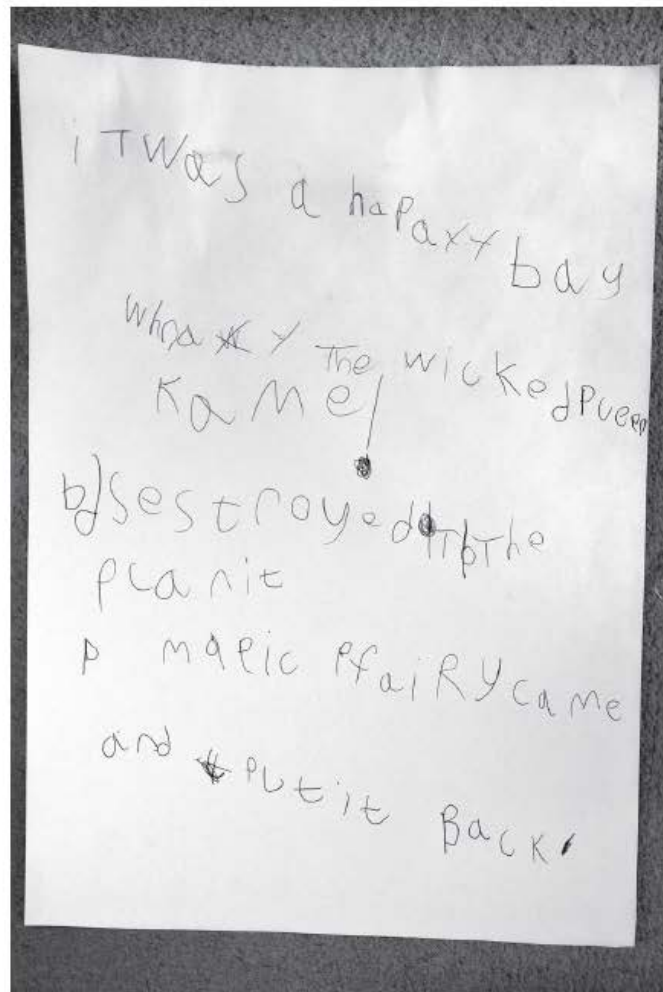 iT Was a haPaxy bay
The wickedPueen
Kame
destroyed The
planit
P magic faiRy came
and Putit Back.